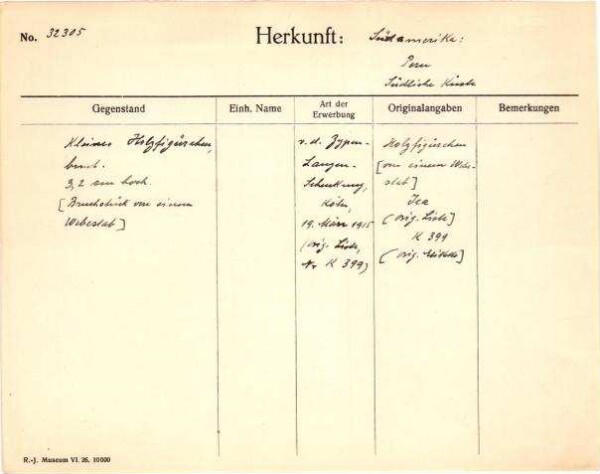 No. 32305
Herkunft: Südamerika:
Peru
Südliche Küste
Gegenstand
Einh. Name
Art der Erwerbung
Originalangaben
Bemerkungen
Kleines Holzfigürchen,
bemt.
3,2 cm hoch.
[Bruchstück von einem
Webestab]
v. d. Zypen-
Langen-
Schenkung,
Köln,
19. März 1915
(orig. Liste,
Nr K 399)
Holzfigürchen
[von einem Webe-
stab]
Ica
(orig. Liste]
K 399
(orig. Etikett]
R.-J. Museum VI. 26. 10000